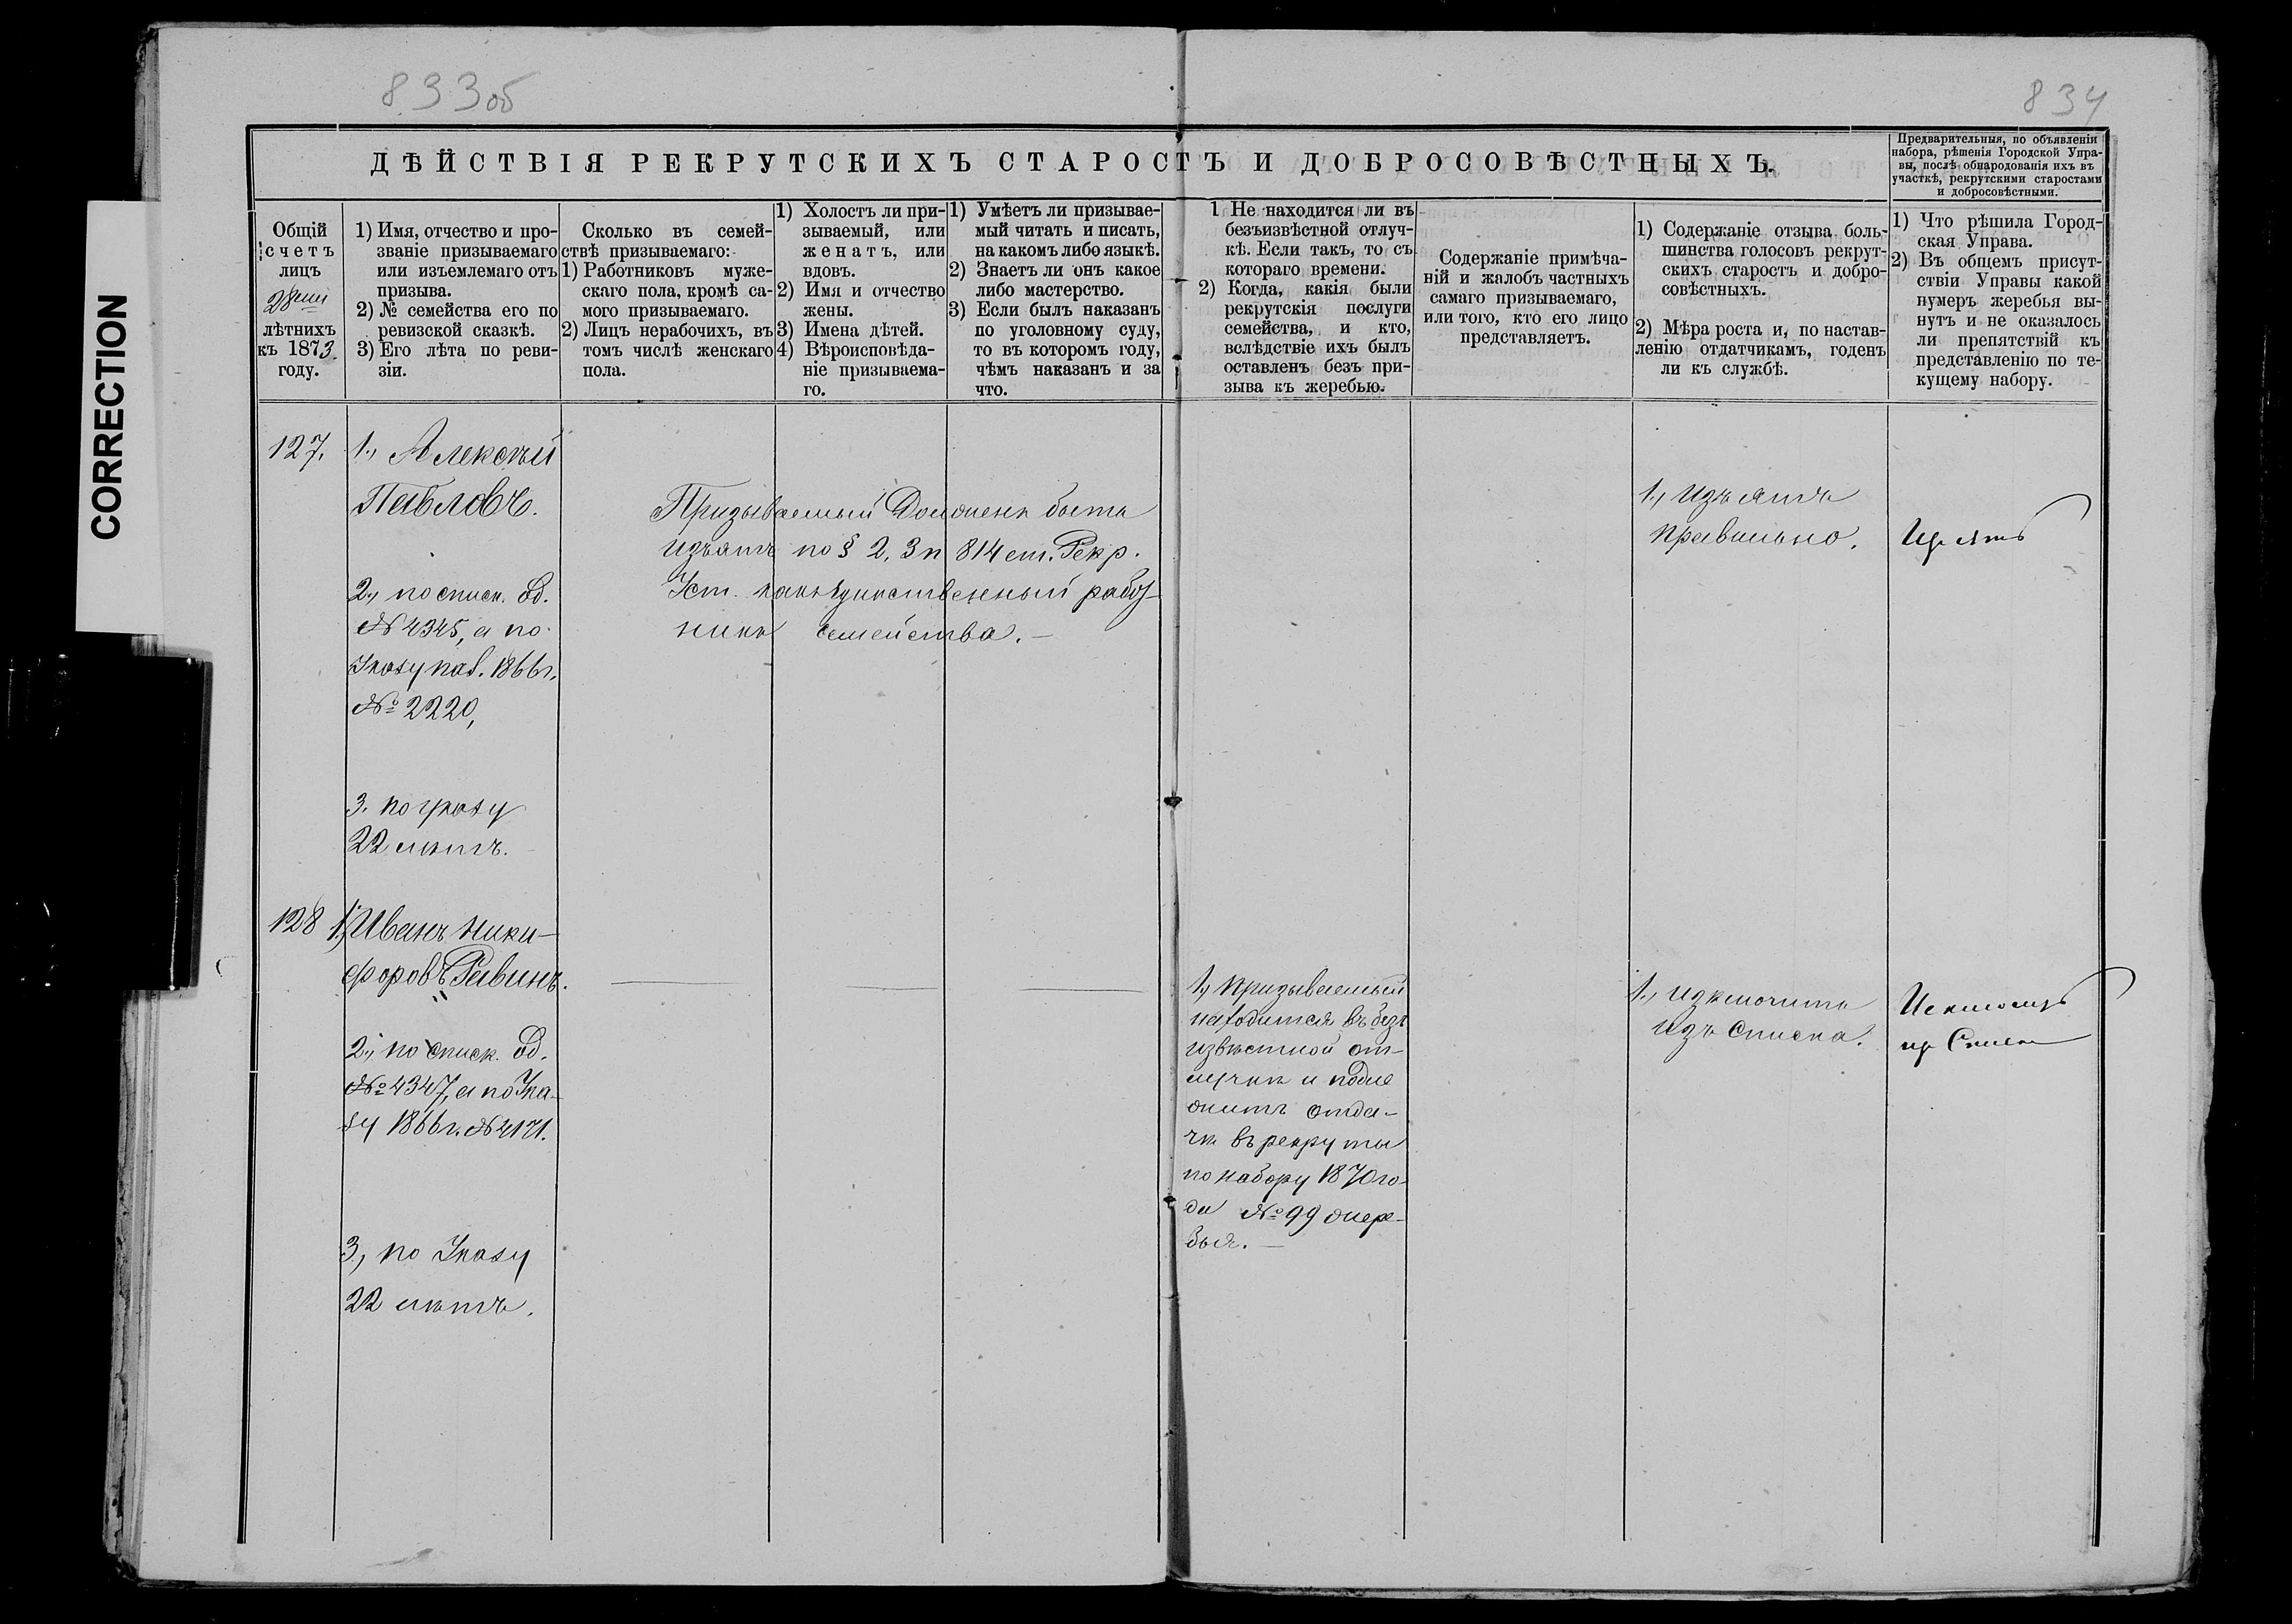 833об
834
CORRECTION
ДѢЙСТВІЯ РЕКРУТСКИХЪ СТАРОСТЪ И ДОБРОСОВѢСТНЫХЪ.
Предварительныя, по объявленіи
набора, рѣшенія Городской Упра-
вы, послѣ обнародованія ихъ въ
участкѣ, рекрутскими старостами
и добросовѣстными.
Общій
счетъ
лицъ
28ми
лѣтнихъ
къ 1873.
году.
1) Имя, отчество и про-
званіе призываемаго
или изъемлемаго отъ
призыва.
2) № семейства его по
ревизской сказкѣ.
3) Его лѣта по реви-
зіи.
Сколько въ семей-
ствѣ призываемаго:
1) Работниковъ муже-
скаго пола, кромѣ са-
мого призываемаго.
2) Лицъ нерабочихъ, въ
томъ числѣ женскаго
пола.
1) Холостъ ли при-
зываемый, или
женатъ, или
вдовъ.
2) Имя и отчество
жены.
3) Имена дѣтей.
4) Вѣроисповѣда-
ніе призываема-
го.
1) Умѣетъ ли призывае-
мый читать и писать,
на какомъ либо языкѣ.
2) Знаетъ ли онъ какое
либо мастерство.
3) Если былъ наказанъ
по уголовному суду,
то въ которомъ году,
чѣмъ наказанъ и за
что.
1 Не находится ли въ
безъизвѣстной отлуч-
кѣ. Если такъ, то съ
котораго времени.
2) Когда, какія были
рекрутскія послуги
семейства, и кто,
вслѣдствіе ихъ былъ
оставленъ безъ при-
зыва къ жеребью.
Содержаніе примѣча-
ній и жалобъ частныхъ
самаго призываемаго,
или того, кто его лицо
представляетъ.
1) Содержаніе отзыва боль-
шинства голосовъ рекрут-
скихъ старостъ и добро-
совѣстныхъ.
2) Мѣра роста и, по настав-
ленію отдатчикамъ, годенъ
ли къ службѣ.
1) Что рѣшила Город-
ская Управа.
2) Въ общемъ присут-
ствіи Управы какой
нумеръ жеребья вы-
нутъ и не оказалось
ли препятствій къ
представленію по те-
кущему набору.
127.
1., Алексѣй
Павловъ.
2., по списк. об.
№ 4345, а по
Указу каб. 1866г.
№ 2220,
3. по указу
22 лѣтъ.
Призываемый Долженъ быть
изъятъ по § 2, 3 п 814 ст. Рекр.
Уст. какъ единственный работ-
никъ семейства. —
1., изъятъ
правильно.
Изъять
128
1., Иванъ Ники-
форовъ Равинъ.
2., по списк. об.
№ 4347, а по Ука-
зу 1866г. № 4171.
3, по Указу
22 лѣтъ.
1, призываемый
находится въ безъ
извѣстной от-
лучкѣ и подле
житъ отда-
чѣ въ рекруты
по набору 1870 го-
да № 99 жере-
бья. —
1., изключить
изъ списка.
Исключить
изъ Списка